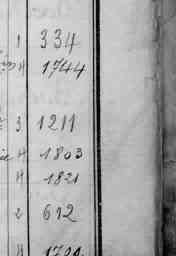 1 334
4 1744
3 1211
4 1803
4 1821
2 612